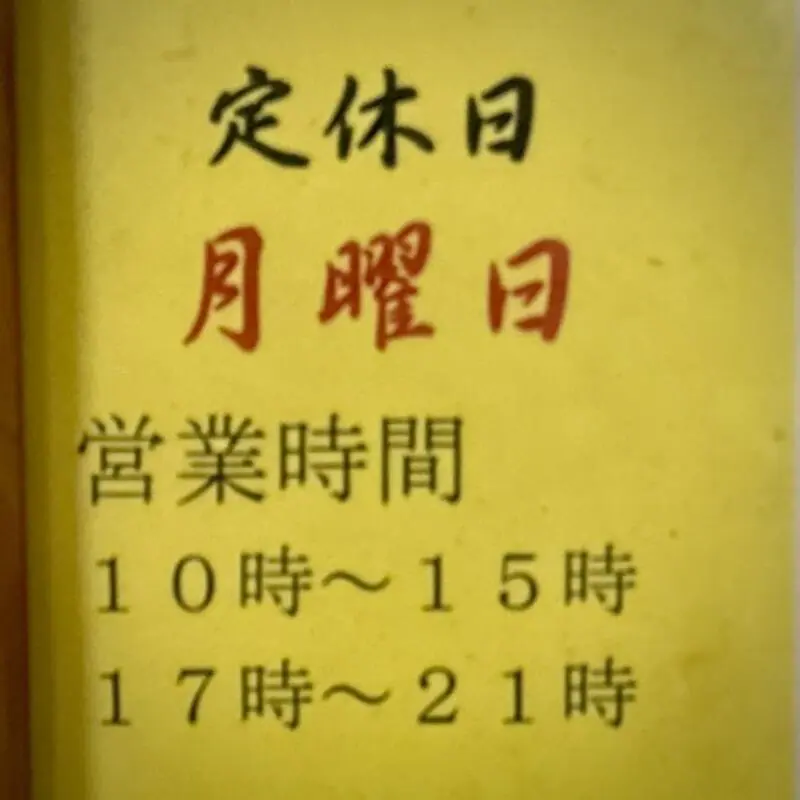 定休日
月曜日
営業時間
１０時～１５時
１７時～２１時